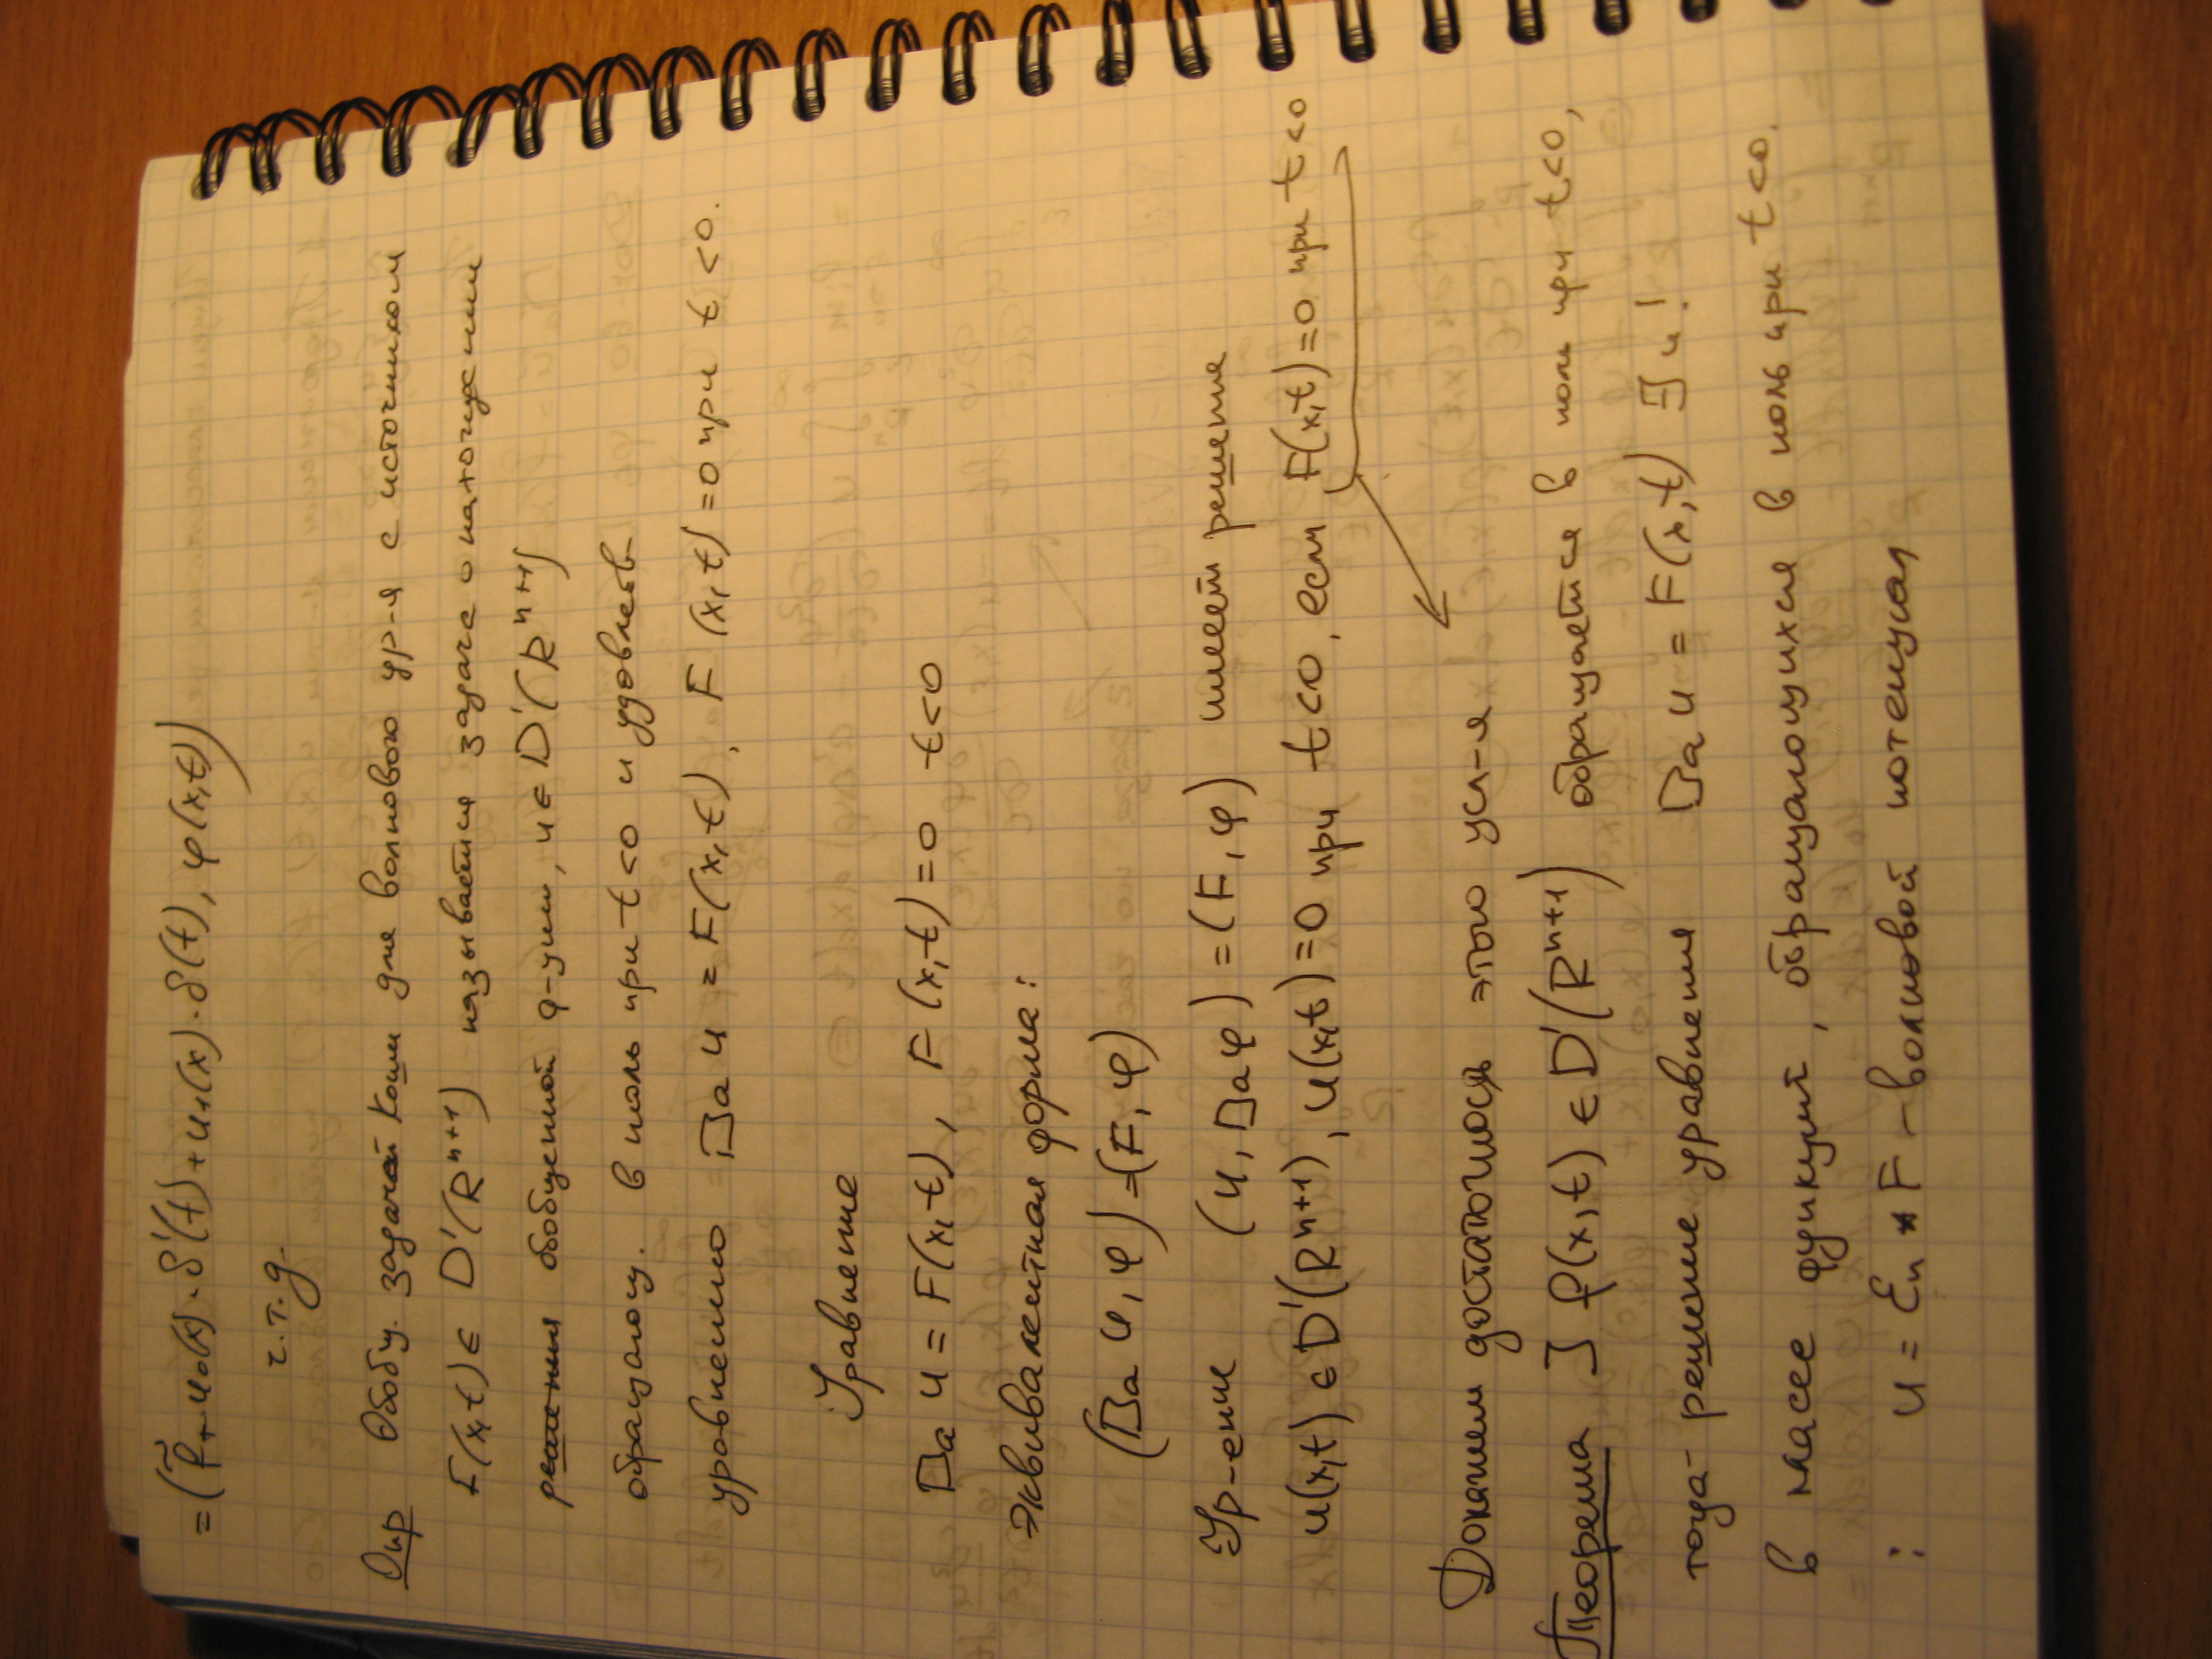 = (f̃ + u₀(x)·δ'(t) + u₁(x)·δ(t), φ(x,t))
ч.т.д.
Опр Обобщ. задачей Коши для волнового ур-я с источником
F(x,t) ∈ D'(Rⁿ⁺¹) называется задача о нахождении
решения обобщенной ф-уии, u ∈ D'(Rⁿ⁺¹)
обращающ. в ноль при t<0 и удовлетв
уровнению □a u = F(x,t), F(x,t)=0 при t<0.
Уравнение
□a u = F(x,t), F(x,t)=0 t<0
Эквивалентная форма:
(□a u, φ) = (F, φ)
Ур-ение (u, □a φ) = (F, φ) имеет решение
u(x,t) ∈ D'(Rⁿ⁺¹), u(x,t)=0 при t<0, если F(x,t)=0 при t<0
Докажем достаточность этого усл-я
Теорема ] f(x,t) ∈ D'(Rⁿ⁺¹) обращается в ноль при t<0,
тогда решение уравнения □a u = F(x,t) ∃ u!
в классе функций, обращающихся в ноль при t<0.
: u = Ɛn * F – волновой потенциал